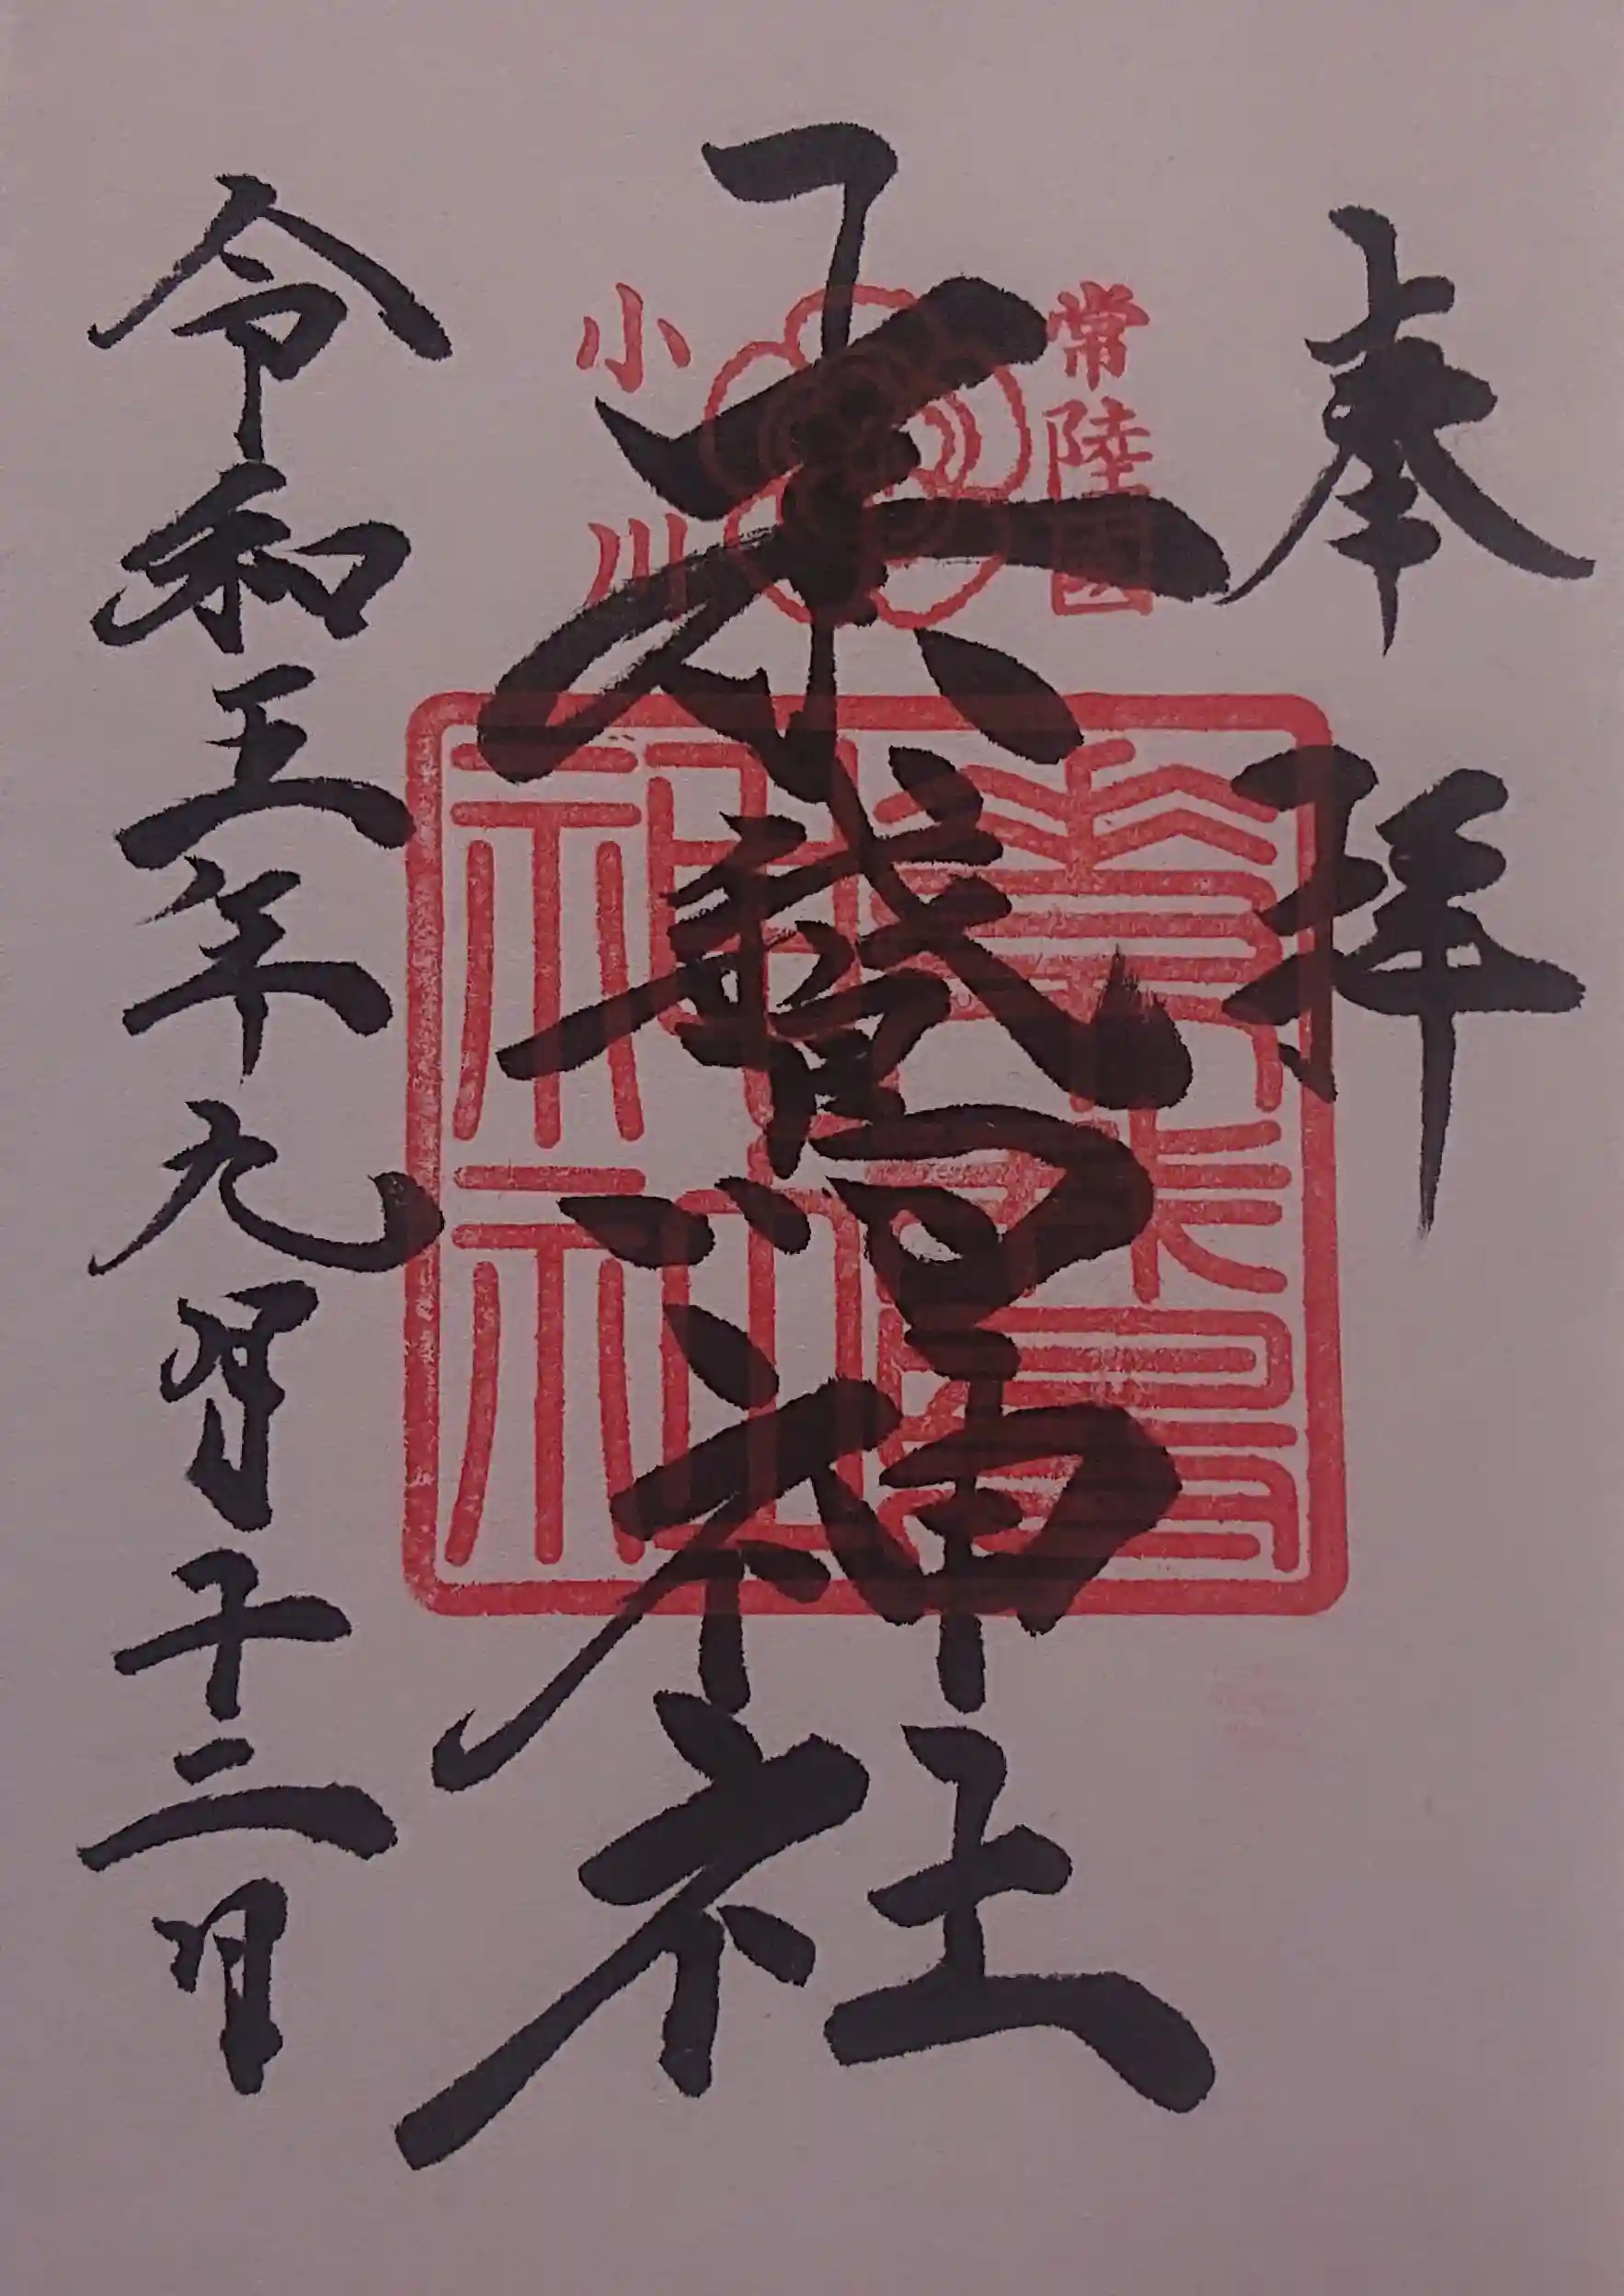 奉拝
常陸國
小川
素鵞神社
素鵞神社
令和五年九月十二日